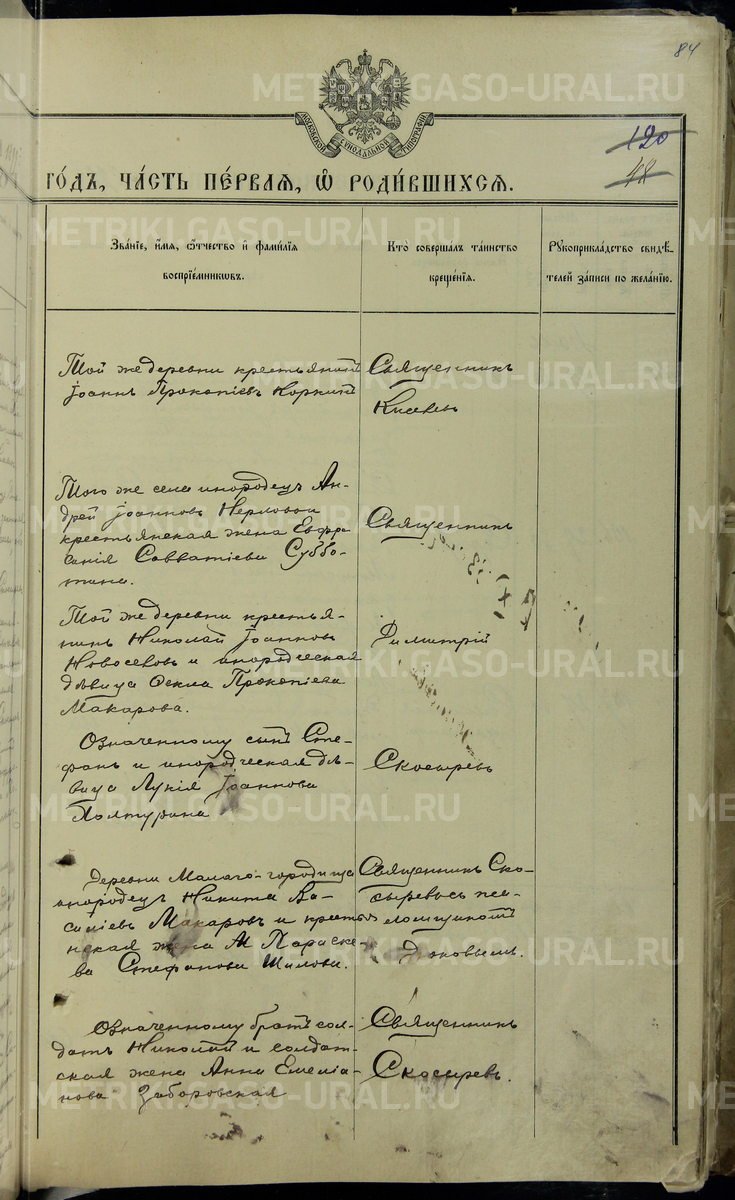 84
120
48
МОСКОВСКОЙ СѴНОДАЛЬНОЙ ТИПОГРАФІИ
ГО́ДЪ, ЧА́СТЬ ПЕ́РВАЯ, Ѽ РОДИ́ВШИХСЯ.
Зва́ніе, и́мя, ѻ҆́тчество и҆ фами́лія
воспріе́мниковъ.
Кто̀ соверша́лъ та́инство
креще́нія.
Рꙋкоприкла́дство свидѣ́-
телей за́писи по жела́нію.
Той же деревни крестьянинъ
Іоаннъ Прокопіевъ Коркинъ
Священникъ
Того же села инородецъ Ан-
дрей Іоанновъ
крестьянская жена Евфра-
сиія Савватіева Суббо-
тина.
Священникъ
Той же деревни крестья-
нинъ Николай Іоанновъ
Новоселовъ и инородческая
дѣвица Ѳекла Прокопіева
Макарова.
Димитрій
Означенному сынъ Сте-
фанъ и инородческая дѣ-
вица Лукія Іоаннова
Скосыревъ
Деревни Малаго-городища
инородецъ Никита Ва-
силіевъ Макаровъ и кресть
янская жена Параске-
ва Стефанова Шилова.
Священникъ Ско-
сыревъ съ пса-
ломщикомъ
Означенному братъ сол-
датъ Николай и солдат-
ская жена Анна Емеліа-
нова Заборовская
Священникъ
Скосыревъ.
METRIKI.GASO-URAL.RU